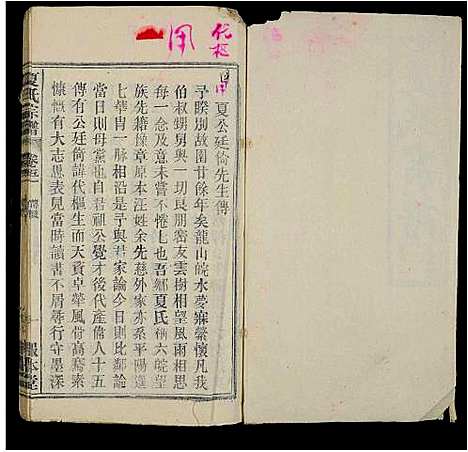 代枢
用
一
夏公廷倚先生傳
予睽別故園廿餘年矣龍山皖水夢寐縈懷凡我
伯叔甥舅與一切艮朋密友雲樹相望風雨相思
每一念及未嘗不惓惓也吾鄉夏氏稱六皖望
族先籍豫章原本汪姓余先慈外家亦系平陽選
七華冑一脉相沿是予與君家論今日則比鄰論
當日則母黨也自君祖公覺才後代產偹人十五
傳有公廷倚諱代樞生而天資卓犖風骨高騫素
慷慨有大志思表見當時讀書不屑尋行守墨深
夏氏宗譜
卷五
傳
報本堂